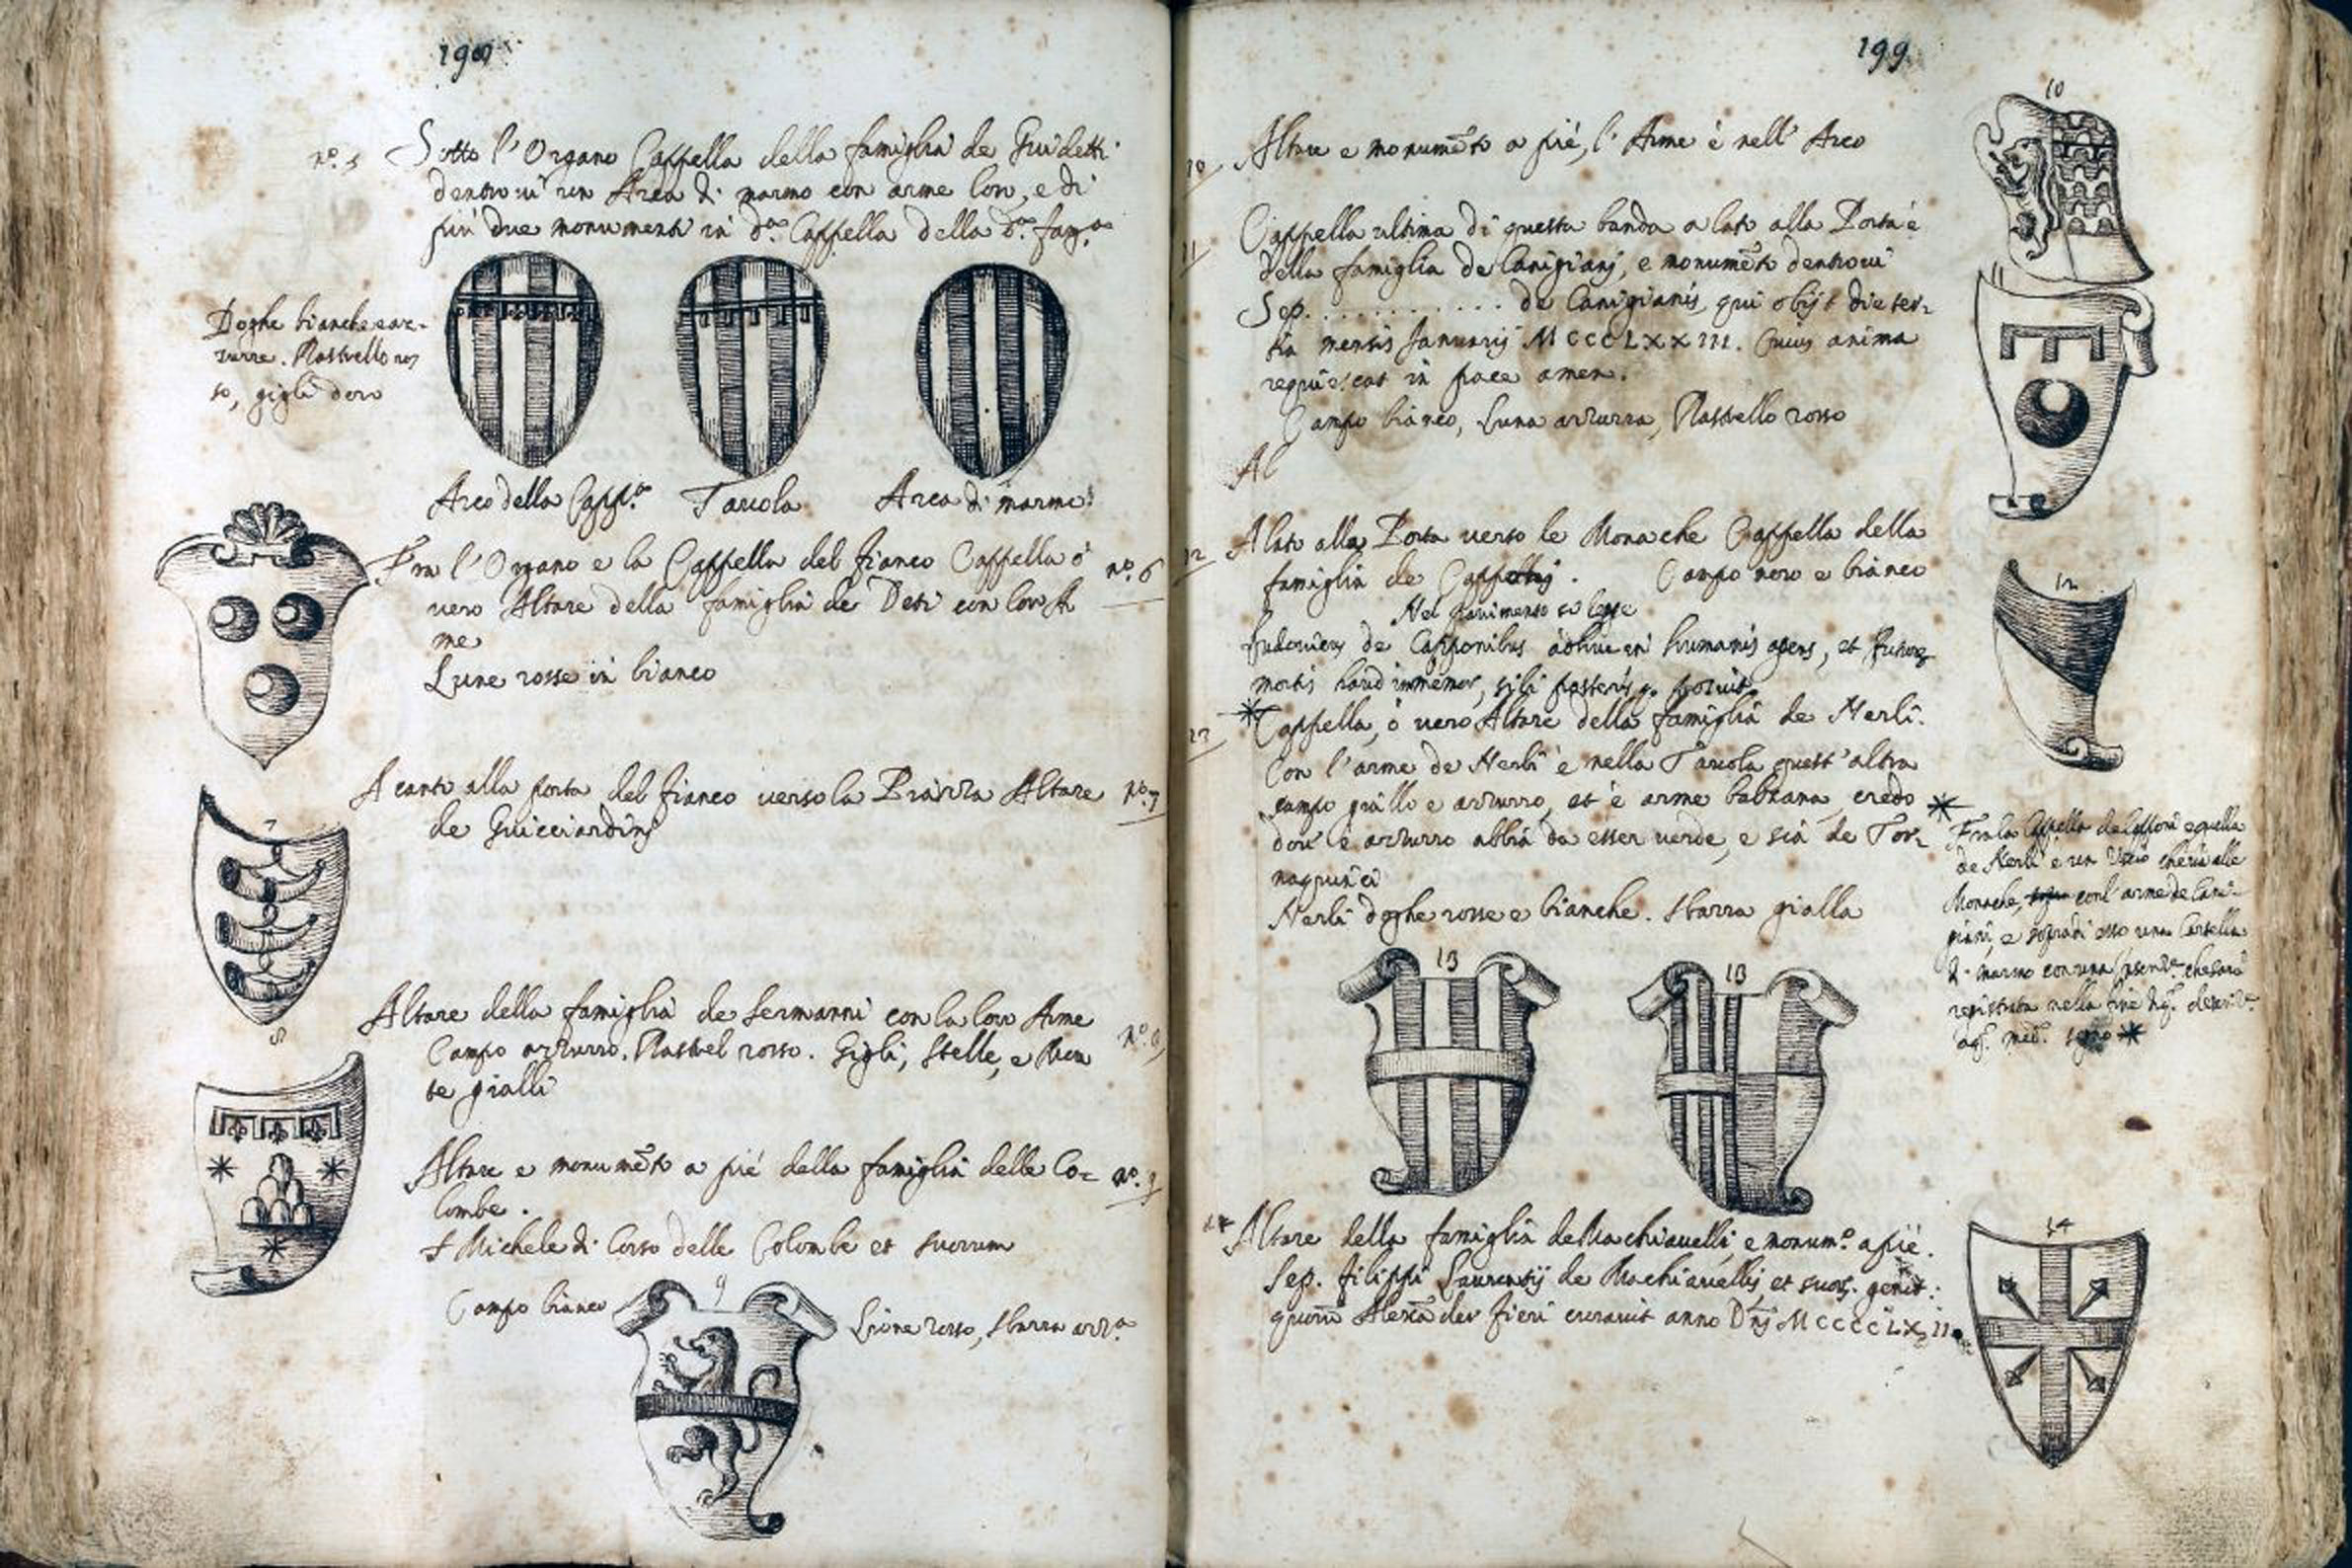 199
Nº. 5
Sotto l'Organo Cappella della famiglia de Guidetti
dentrovi un Arca di marmo con arme loro, e di
più due monumenti in d.ª Cappella della d.ª fam.ª
Doghe bianche e az-
zurre. Rastrello ros
so, gigli d'oro
Arco della Capp.ª
Tavola
Arca di marmo
Fra l'Organo e la Cappella del fianco Cappella ò
vero Altare della famiglia de Deti con loro Ar
me
Lune rosse in bianco
nº. 6
A canto alla porta del fianco verso la Piazza Altare
de Guicciardini
nº. 7
7
8
Altare della famiglia de Sermanni con la loro Arme
Campo azzurro. Rastrel rosso. Gigli, Stelle, e Mon
te gialli
nº. 8
Altare e monumẽto a piè della famiglia delle Co=
lombe.
S Michele di Corso delle Colombe et suorum
nº. 9
Campo bianco
9
Lione rosso, sbarra azz.ª
199
10
10 Altare e monumẽto a piè, l'Arme è nell'Arco
11 Cappella ultima di questa banda a lato alla Porta è
della famiglia de Canigianj, e monumẽto dentrovi
Sep. . . . . . . . . . . . de Canigianis, qui obijt die ter=
tia mensis Januarij MCCCLXXIII. Cuius anima
requiescat in pace amen.
Campo bianco, Luna azzurra, Rastrello rosso
11
Al
12 A lato alla Porta verso le Monache Cappella della
famiglia de Capponj. Campo nero e bianco
Nel pavimento si legge
Ludovicus de Capponibus adhuc in humanis agens, et future
mortis haud immemor, sibi posterisq. posuit.
12
13 Cappella, ò vero Altare della famiglia de Nerli.
Con l'arme de Nerli è nella Tavola quest'altra
campo giallo e azzurro, et è arme balzana, credo
dove è azzurro abbia da esser verde, e sia de Tor=
naquinci
Nerli doghe rosse e bianche. Sbarra gialla
Fra la Cappella de Capponi e quella
de Nerli è un Uscio che va alle
Monache, con l'arme de Cani-
giani, e sopra di esso una Cartella
di marmo con una che sarà
registrata nella fine
segno
13
13
14 Altare della famiglia de Machiavelli, e monum.º a piè.
Sep. Filippi Laurentij de Machiavellis, et suor. genit:
quorũ Alexãder fieri curavit anno Dnj MCCCCLXII
14